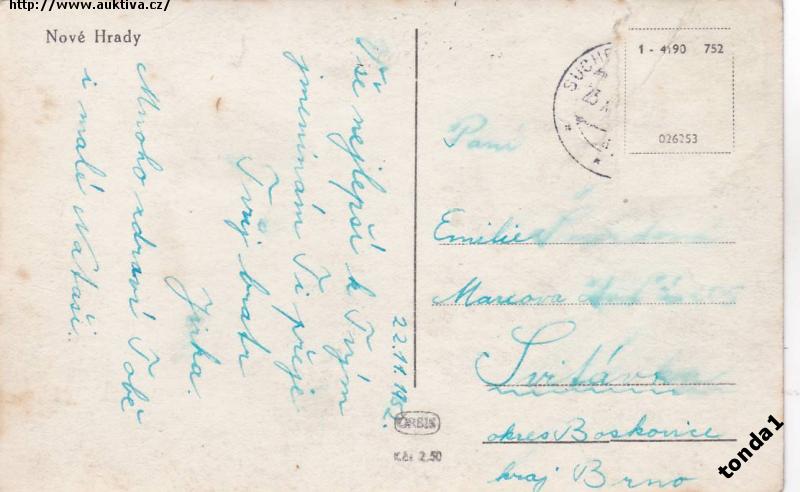 http://www.auktiva.cz/
Nové Hrady
Vše nejlepší k Tvým
jmeninám Ti přeje
Tvůj bratr
Jirka.
Mnoho zdraví Tobě
i malé Nataši.
22.11.1952.
ORBIS
Kčs 2.50
SUCH
23. X
1 - 4190 752
026253
Paní
Emilie
Marcova
Svitávka
okres Boskovice
kraj Brno
tonda1